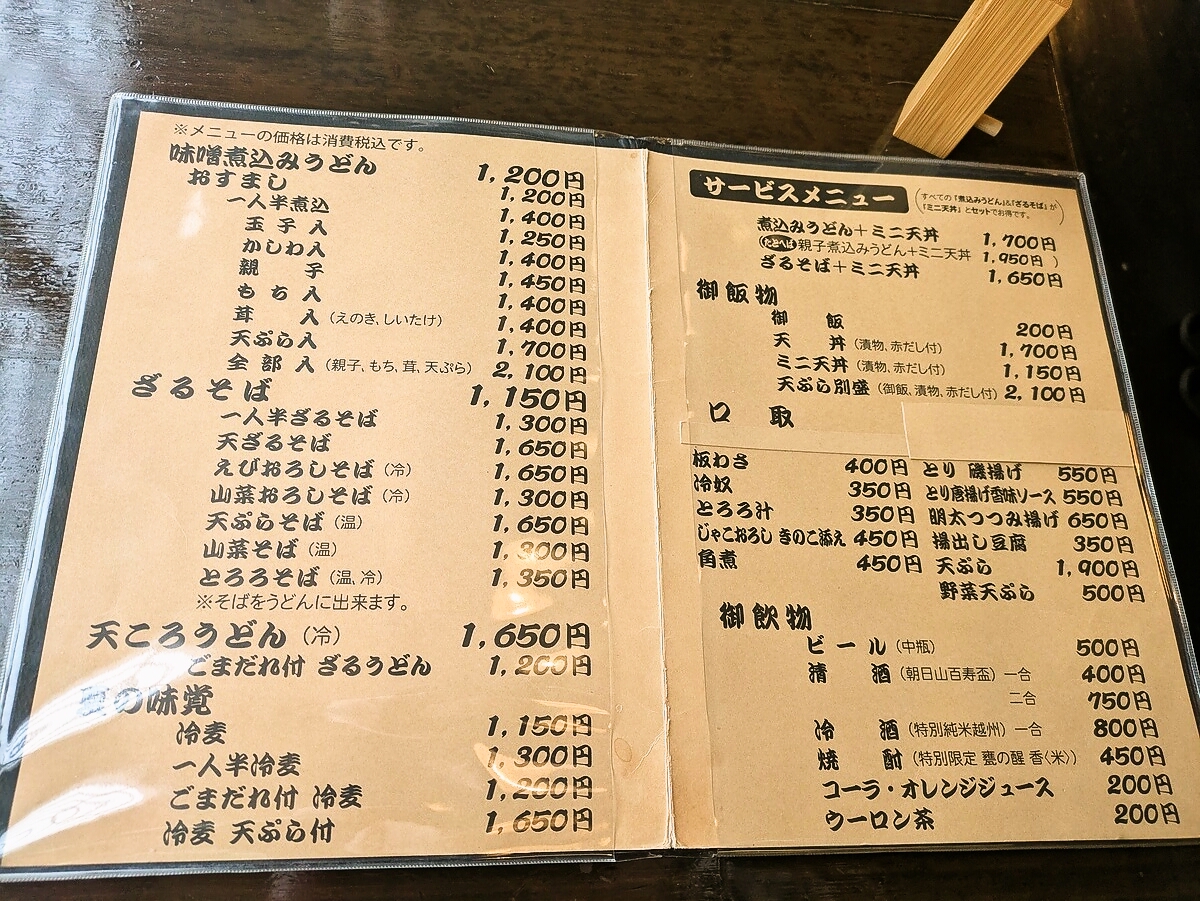 ※メニューの価格は消費税込です。
味噌煮込みうどん 1,200円
おすまし 1,200円
一人半煮込 1,400円
玉子入 1,250円
かしわ入 1,400円
親子 1,450円
もち入 1,400円
茸入(えのき、しいたけ) 1,400円
天ぷら入 1,700円
全部入(親子、もち、茸、天ぷら) 2,100円
ざるそば 1,150円
一人半ざるそば 1,300円
天ざるそば 1,650円
えびおろしそば(冷) 1,650円
山菜おろしそば(冷) 1,300円
天ぷらそば(温) 1,650円
山菜そば(温) 1,300円
とろろそば(温、冷) 1,350円
※そばをうどんに出来ます。
天ころうどん(冷) 1,650円
ごまだれ付 ざるうどん 1,200円
の味覚
冷麦 1,150円
一人半冷麦 1,300円
ごまだれ付 冷麦 1,200円
冷麦 天ぷら付 1,650円
サービスメニュー
すべての「煮込みうどん」&「ざるそば」が
「ミニ天丼」とセットでお得です。
煮込みうどん+ミニ天丼 1,700円
(たとえば 親子煮込みうどん+ミニ天丼 1,950円)
ざるそば+ミニ天丼 1,650円
御飯物
御飯 200円
天丼(漬物、赤だし付) 1,700円
ミニ天丼(漬物、赤だし付) 1,150円
天ぷら別盛(御飯、漬物、赤だし付) 2,100円
口取
板わさ 400円
冷奴 350円
とろろ汁 350円
じゃこおろし きのこ添え 450円
角煮 450円
とり 磯揚げ 550円
とり唐揚げ香味ソース 550円
明太つつみ揚げ 650円
揚出し豆腐 350円
天ぷら 1,900円
野菜天ぷら 500円
御飲物
ビール(中瓶) 500円
清酒(朝日山百寿盃)一合 400円
二合 750円
冷酒(特別純米越州)一合 800円
焼酎(特別限定 甕の醒 香〈米〉) 450円
コーラ・オレンジジュース 200円
ウーロン茶 200円